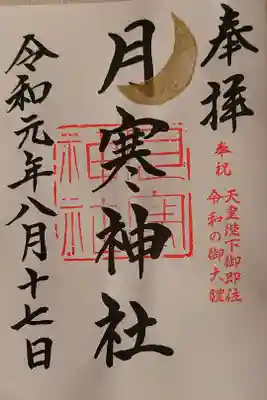 奉拝
奉祝
天皇陛下御即位
令和の御大禮
月寒神社
令和元年八月十七日